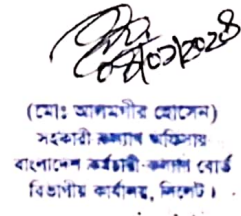 ০৪/০১/২০২৪
(মোঃ আলমগীর হোসেন)
সহকারী কল্যাণ অফিসার
বাংলাদেশ কর্মচারী কল্যাণ বোর্ড
বিভাগীয় কার্যালয়, সিলেট।